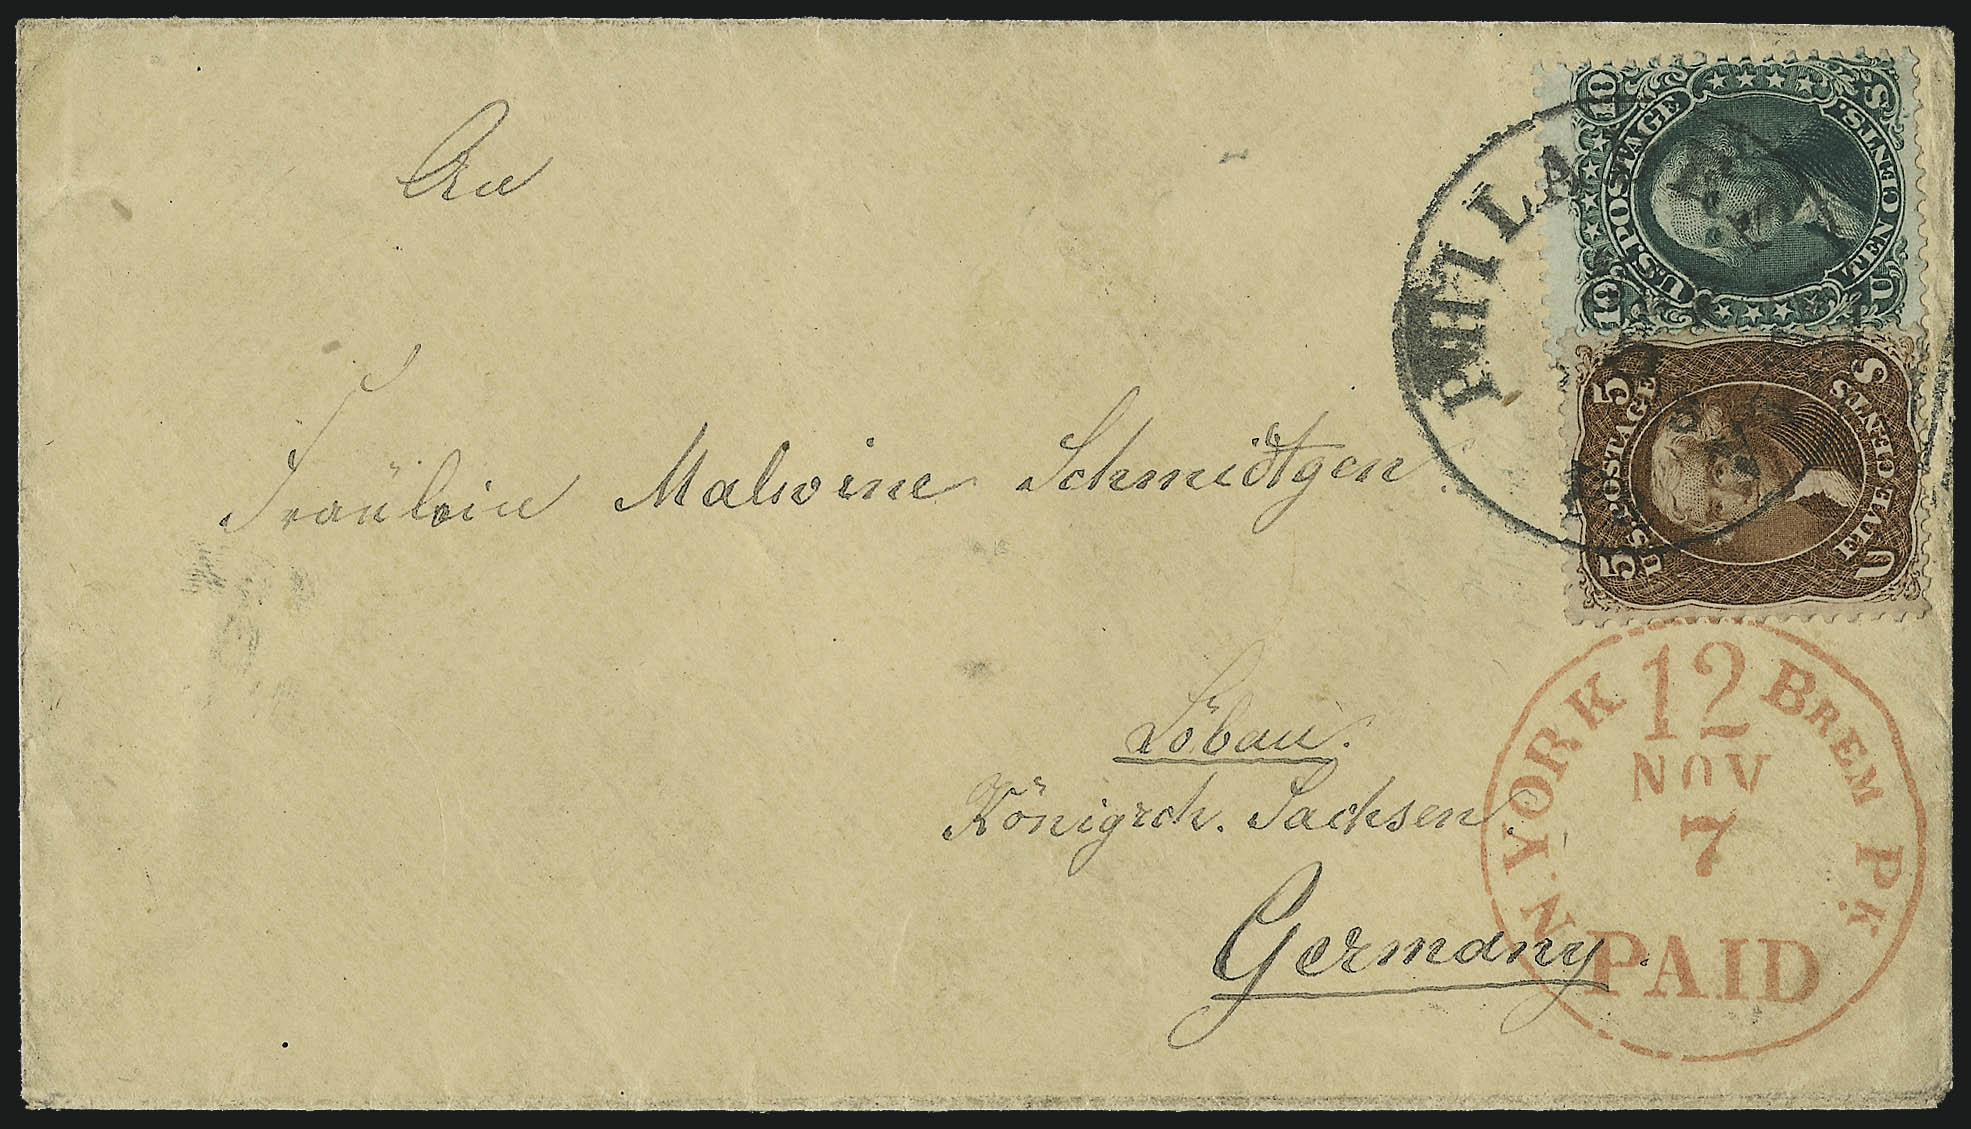 An
Fräulein Malwine Schmidtgen.
Löbau.
Königrch. Sachsen.
Germany.
PHILA
10 U.S. POSTAGE 10
TEN CENTS.
U S
5 U.S. POSTAGE 5
FIVE CENTS
U S
N. YORK 12 BREM PK.
NOV
7
PAID